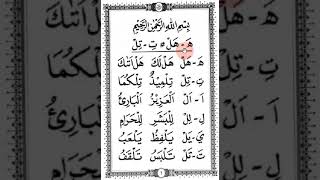 بِسْمِ اللهِ الرَّحْمٰنِ الرَّحِيْمِ
هَـ - هَلْ ٥ تِـ - تِلْ
هَـ - هَلْ هَلْ لَكَ هَلْ اَتٰكَ
تِـ - تِلْ تِلْمِيْذٌ تِلْكُمَا
اَ - اَلْ اَلْعَزِيْزُ اَلْبَارِئُ
لِـ - لِلْ لِلْبَشَرِ لِلْحَرَامِ
يَـ - يَلْ يَلْفِظُ يَلْعَبُ
تَـ - تَلْ تَلْبَسُ تَلْقَفُ